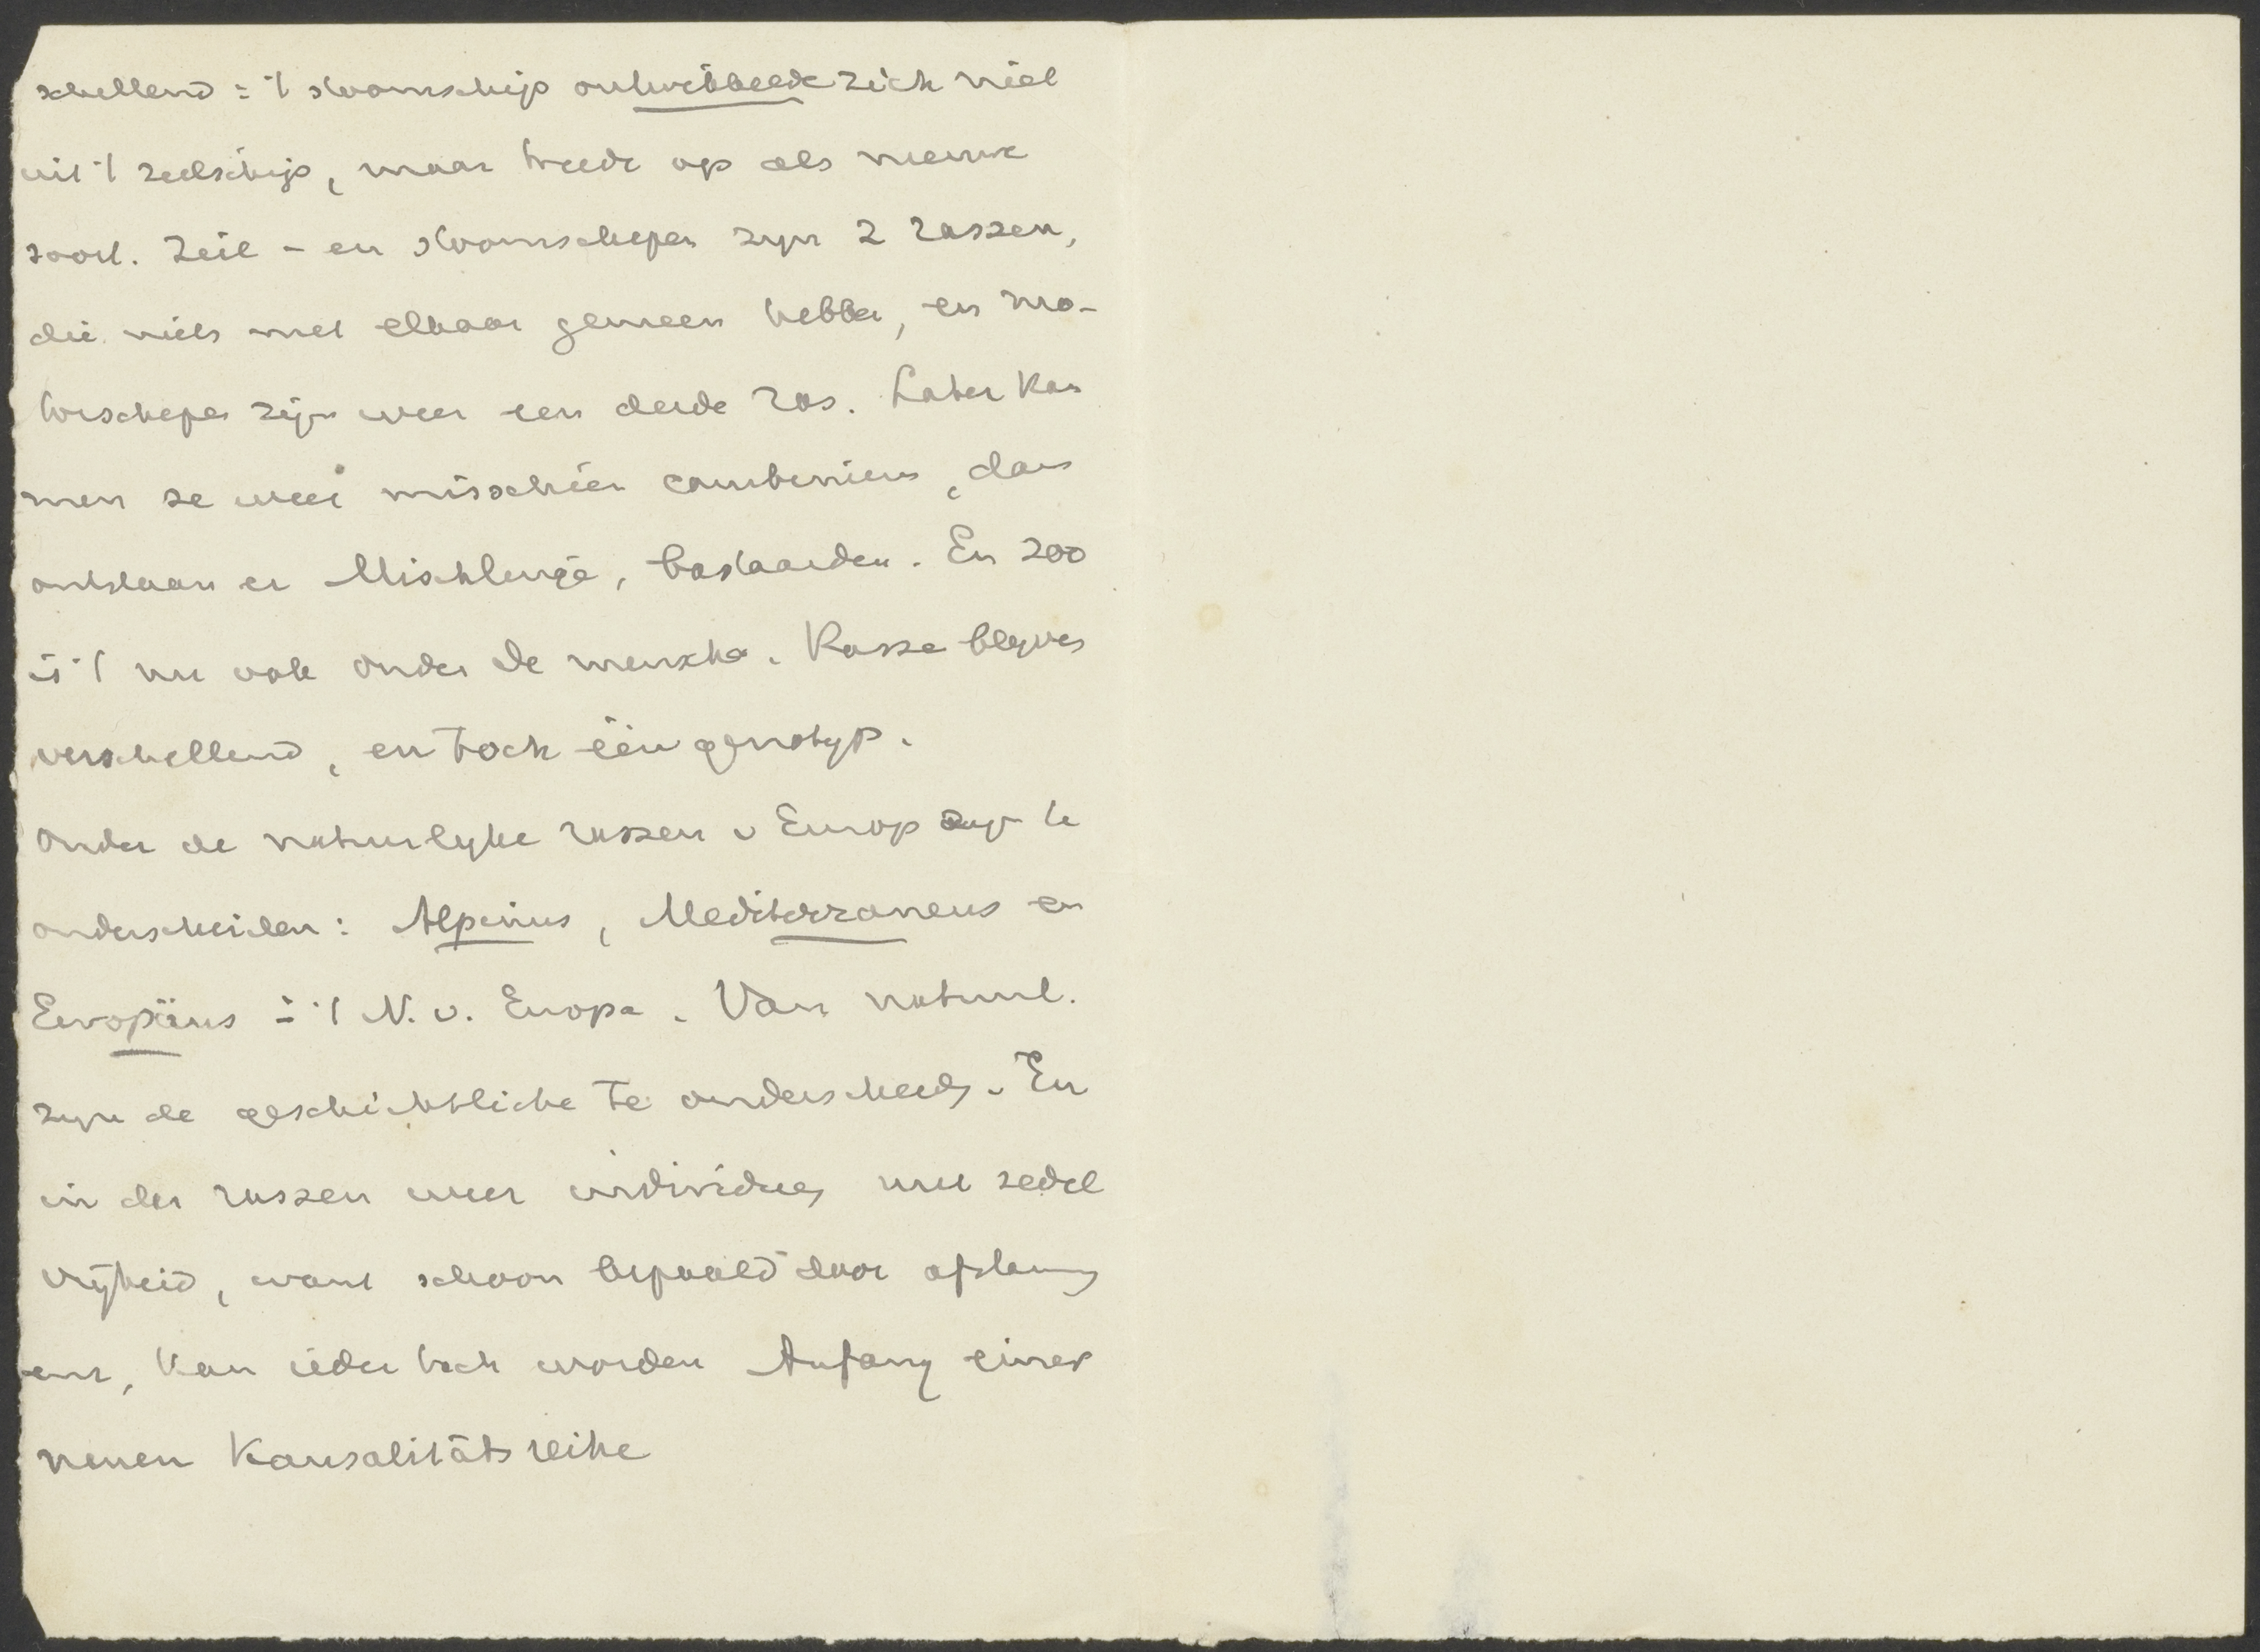 schillend: 't stoomschip ontwikkelde zich niet
uit 't zeilschip, maar treedt op als nieuwe
soort. Zeil- en stoomschepen zyn 2 rassen,
die niets met elkaar gemeen hebben, en mo-
torschepen zijn weer een derde ras. Later kan
men ze weer misschien combinieren, dan
ontstaan er Mischlinge, bastaarden. En zoo
is 't nu ook onder de menschen. Rasse blyven
verschillend, en toch één genotyp.
Onder de natuurlyke rassen v Europ zyn te
onderscheiden: Alpinus, Mediterraneus en
Europäus in 't N. v. Europa. Van natuurl.
zyn de geschichtliche te onderscheiden. En
in der rassen weer individuen met zedel
vrijheid, want schoon bepaald door afstamming
enz, kan ieder toch worden Anfang einer
neuen Kausalitätsreihe